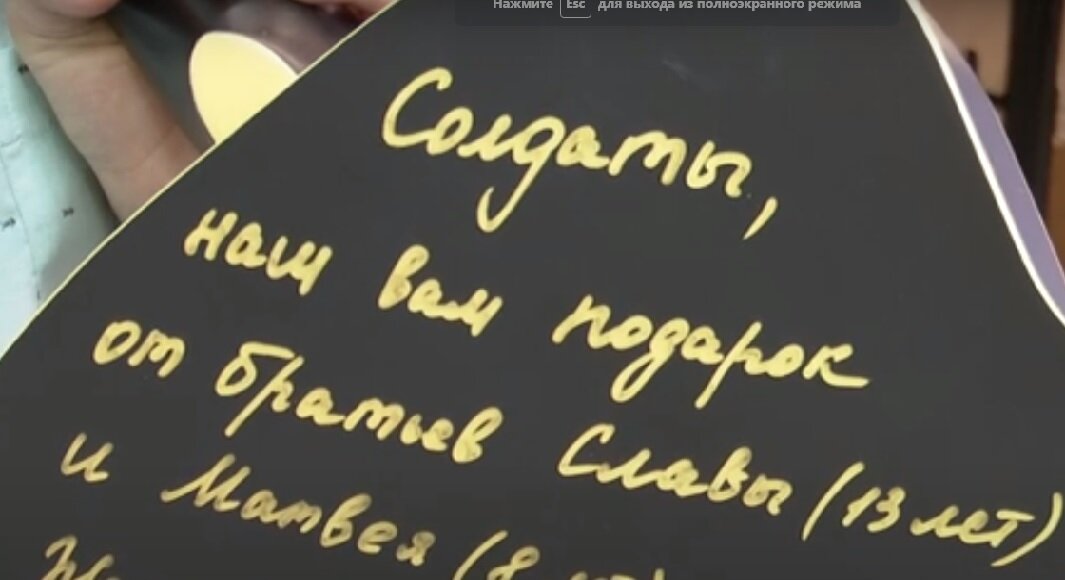 Нажмите Esc для выхода из полноэкранного режима
Солдаты,
наш вам подарок
от братьев Славы (13 лет)
и Матвея (8